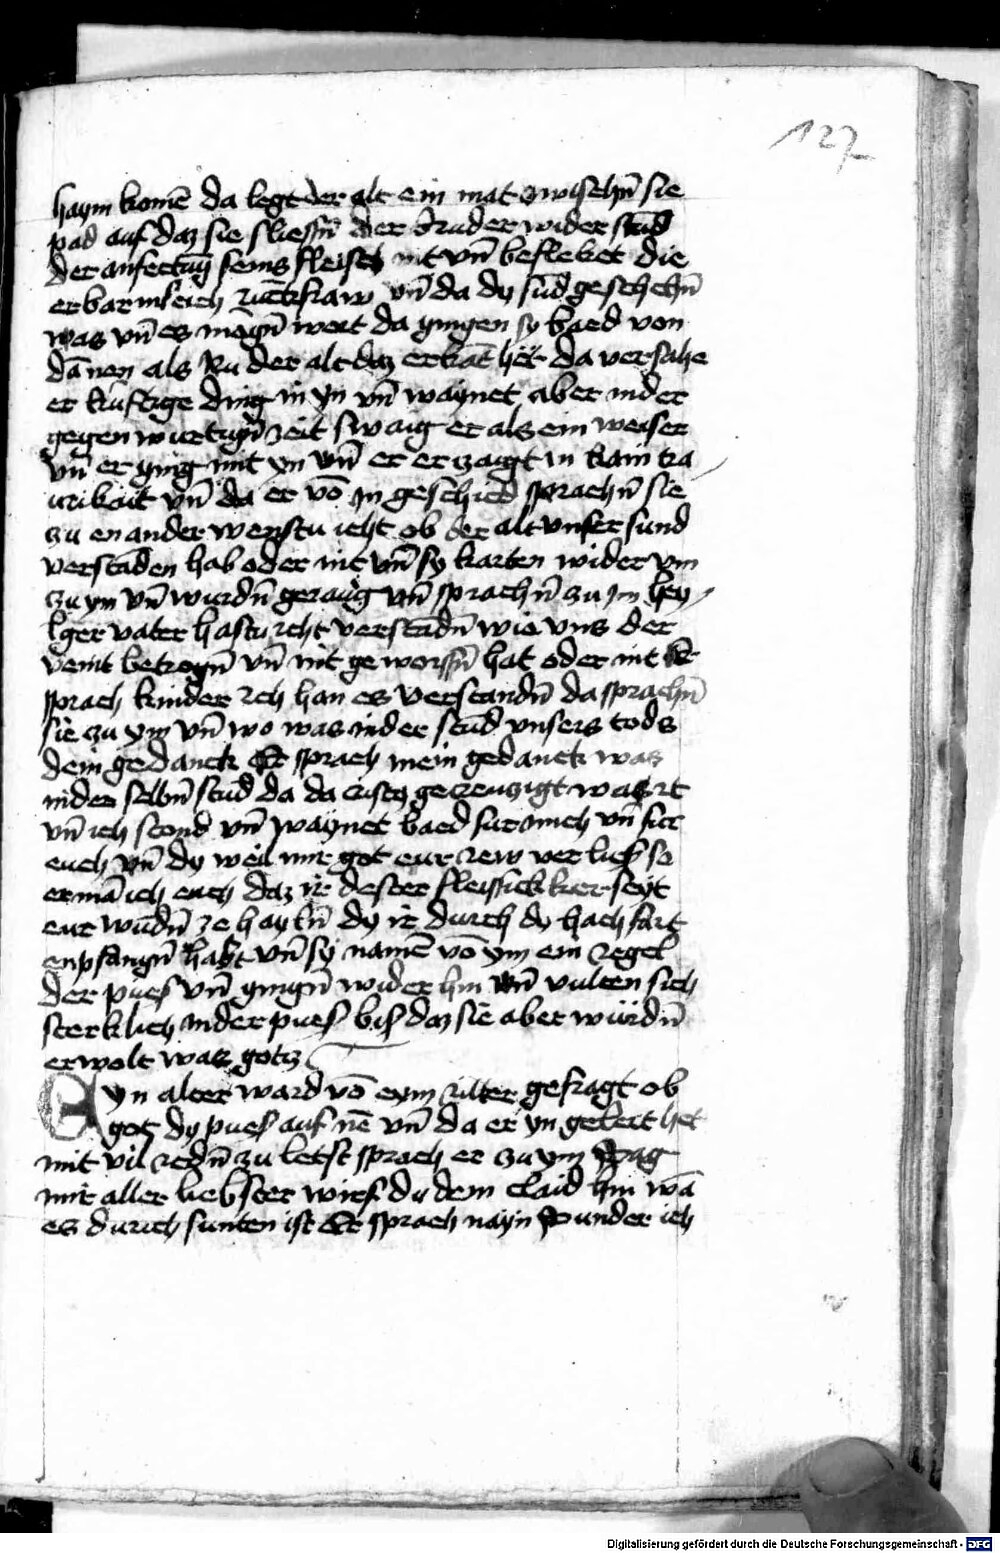 127
haym komē da legt der alt ein mat zwischn̄ sie
pad auf daz sie slieffn̄ der Bruder wider stūd
der anfectūg seins fleisch nit vn̄ beflekct die
erbarmkleich vn̄ da dy sūd geschehn̄
was vn̄ es morgn̄ wort da gingen sy baed von
dānen als Nu der alt daz erkāt het da versahe
er kūftige ding in yn vn̄ waynet aber in der
gegen wurtign̄ zeit swaig er als ein weiser
vn̄ er ging mit yn vn̄ er erzaigt in kain tra
urikait vn̄ da er vō Jn geschied sprachn̄ sie
zu en ander wenstu icht ob der alt vnser sund
verstāden hab oder nit vn̄ sy karten wider vm
zu ym vn̄ wurdn̄ gerawig vn̄ sprachn̄ zu Jm hey
lger vater hastu icht verstādn̄ wie vns der
veint betrogn̄ vn̄ nit geworffn̄ hat oder nit Er
sprach kinder Ich han es verstandn̄ da sprachn̄
sie zu ym vn̄ wo was in der stūd vnsers tods
dein gedanck Er sprach mein gedanck was
in der selbn̄ stūd da da cristz gecreuczigt wart
vn̄ ich stond vn̄ waynet baed fur mich vn̄ fur
euch vn̄ dy weil mir got eur rew verlich so
ermā ich euch daz ir dester fleissickkleer seyt
eur wūdn̄ ze hayln̄ dy ir durch dy hachfart
enpfangn̄ habt vn̄ sy namē vō ym ein regel
der pues vn̄ gingn̄ wider hin vn̄ vulten sich
sterklich in der pues bis daz sie aber würdn̄
erwolt waz gotz
Eyn alter ward vō eym ritter gefragt ob
got dy pues auf nē vn̄ da er yn gelert het
mit vil redn̄ zu letst sprach er zu ym sag
mir aller liebster wirfs du dem claid hin wā
es durich sunten ist Er sprach nayn Sunder ich
Digitalisierung gefördert durch die Deutsche Forschungsgemeinschaft - DFG